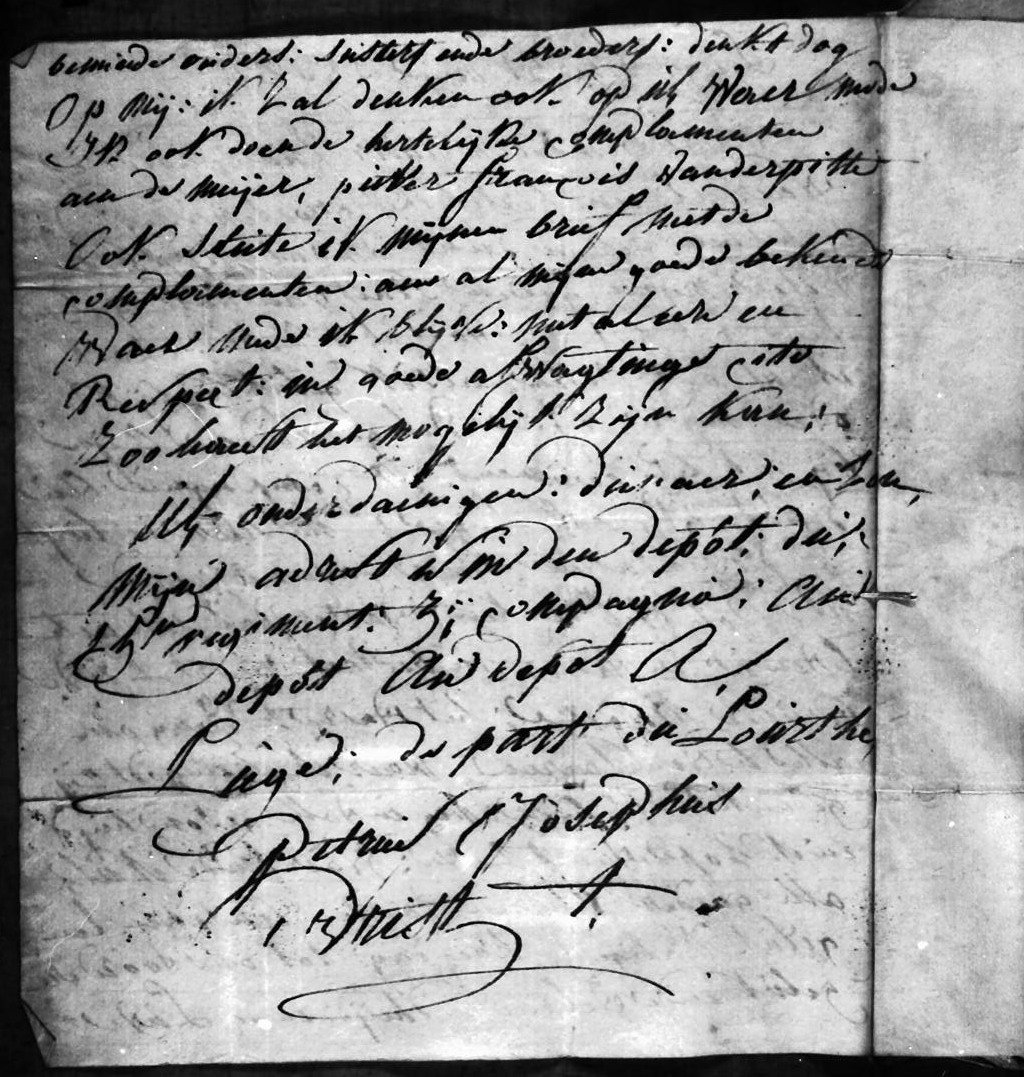 beminde ouders: susters ende broeders: denkt dog
Op mij: ik zal denken ook op ul, Waer mede
Ik ook doende hertelijke complementen
aen de meijer, pieter françois vanderpitte
Ook sluite ik mijnen brief met de
complementen: aen al mijne goede bekende
Waer mede ik blijve: met al eer en
Respect: in goede afwagtinge cito
Zoo haest het mogelijk zijn kan;
Ul onderdaenigen: dienaer; en zon,
Mijn adrest is in den depot: du;
regiment: 3; compagnie; Au
depôt Au depôt A
Liege; de part du Lourthe,
petrus Josephus